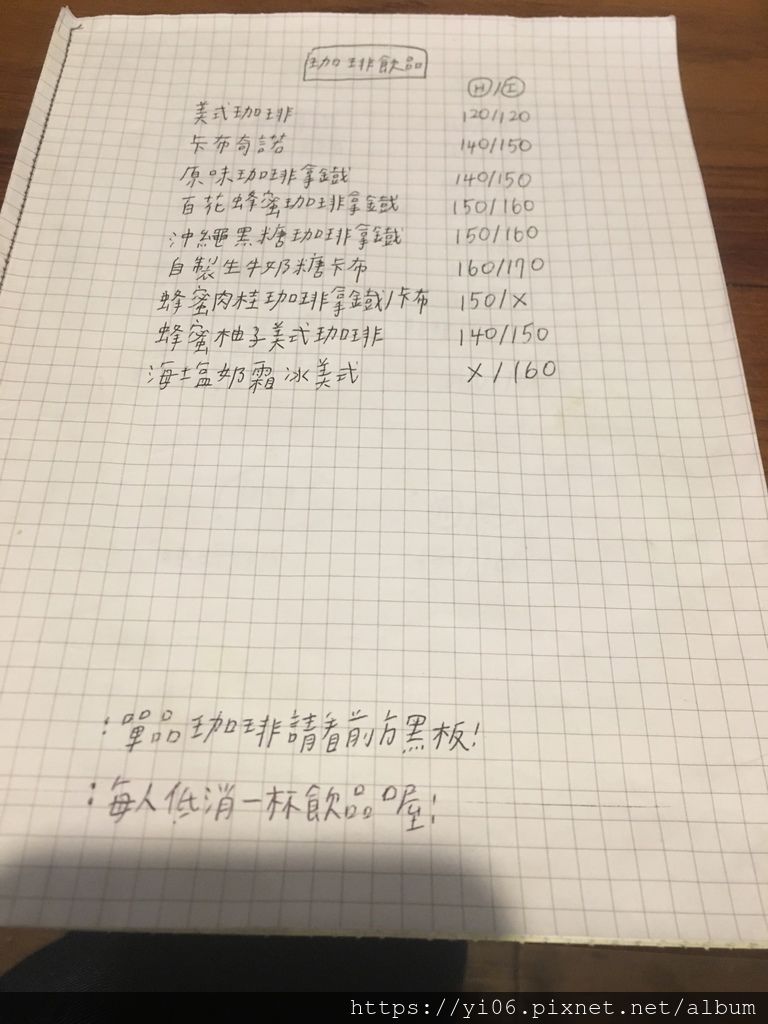 珈琲飲品
H/I
美式珈琲 120/120
卡布奇諾 140/150
原味珈琲拿鐵 140/150
百花蜂蜜珈琲拿鐵 150/160
沖繩黑糖珈琲拿鐵 150/160
自製生牛奶糖卡布 160/170
蜂蜜肉桂珈琲拿鐵/卡布 150/X
蜂蜜柚子美式珈琲 140/150
海塩奶霜冰美式 X/160
:單品珈琲請看前方黑板!
:每人低消一杯飲品喔!
https://yi06.pixnet.net/album